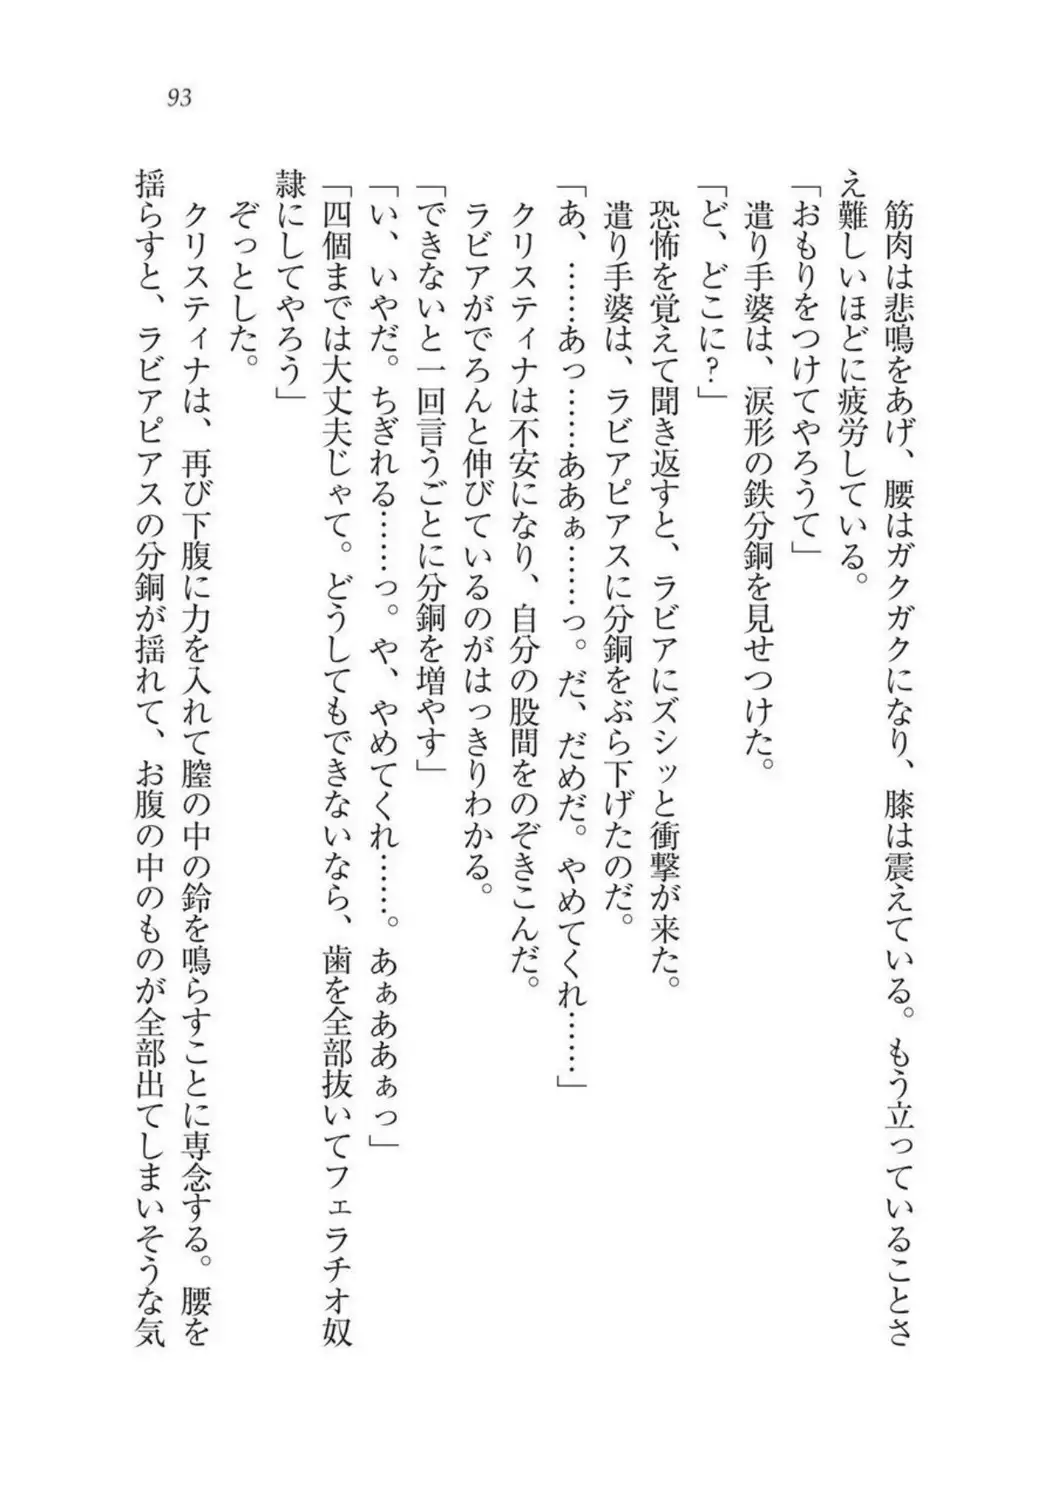 93
　筋肉は悲鳴をあげ、腰はガクガクになり、膝は震えている。もう立っていることさ
え難しいほどに疲労している。
「おもりをつけてやろうて」
　遣り手婆は、涙形の鉄分銅を見せつけた。
「ど、どこに?」
　恐怖を覚えて聞き返すと、ラビアにズシッと衝撃が来た。
　遣り手婆は、ラビアピアスに分銅をぶら下げたのだ。
「あ、……あっ……ああぁ……っ。だ、だめだ。やめてくれ……」
　クリスティナは不安になり、自分の股間をのぞきこんだ。
　ラビアがでろんと伸びているのがはっきりわかる。
「できないと一回言うごとに分銅を増やす」
「い、いやだ。ちぎれる……っ。や、やめてくれ……。あぁああぁっ」
「四個までは大丈夫じゃて。どうしてもできないなら、歯を全部抜いてフェラチオ奴
隷にしてやろう」
　ぞっとした。
　クリスティナは、再び下腹に力を入れて膣の中の鈴を鳴らすことに専念する。腰を
揺らすと、ラビアピアスの分銅が揺れて、お腹の中のものが全部出てしまいそうな気